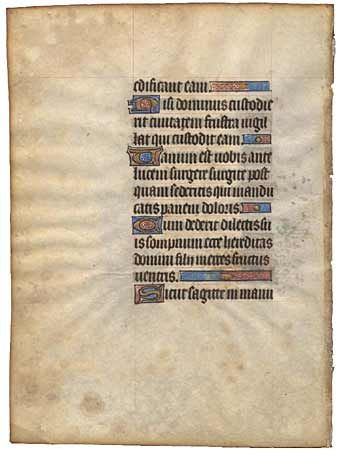 edificant eam.
Nisi dominus custodie
rit ciuitatem frustra uigi
lat qui custodit eam.
Vanum est uobis ante
lucem surgere surgite post
quam sederitis qui mandu
catis panem doloris.
Cum dederit dilectis su
is sompnum ecce hereditas
domini filii merces fructus
uentris.
Sicut sagitte in manu